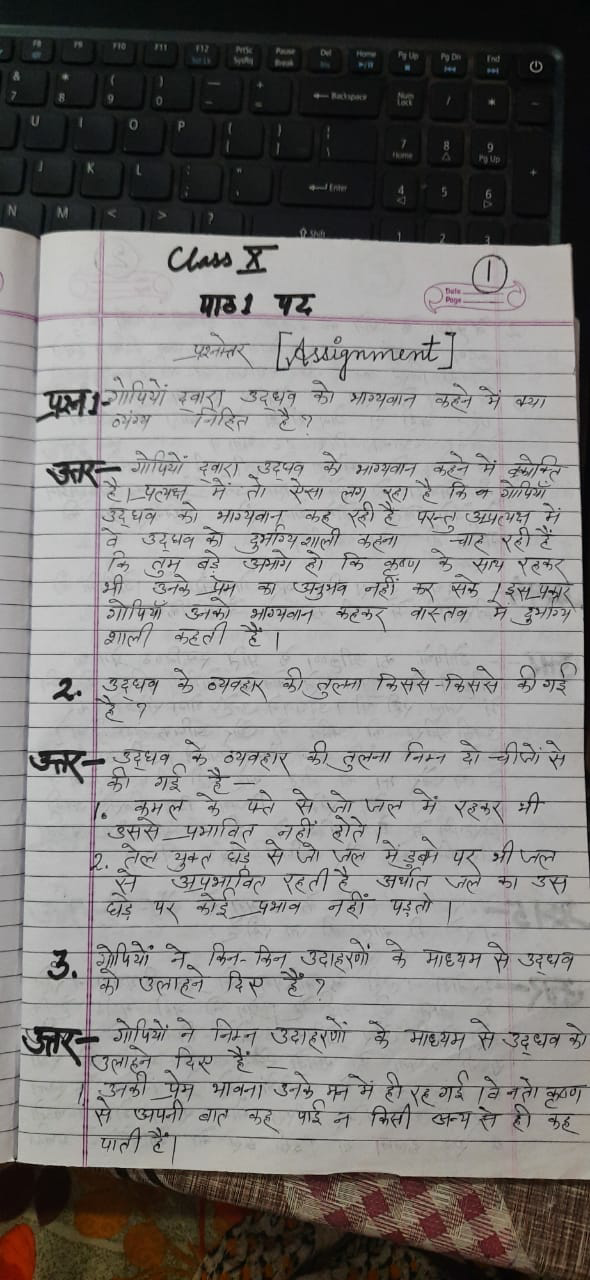 F8 F9 F10 F11 F12 PrtSc SysRq Pause Break Del Ins Home Pg Up Pg Dn End
& 7 * 8 ( 9 ) 0 Backspace Num Lock / * -
U I O P 7 Home 8 9 Pg Up +
J K L Enter 4 5 6
N M < > ? Shift 1 2 3
Class X
1
Date
Page
पाठ 1 पद
प्रश्नोत्तर [Assignment]
प्रश्न 1- गोपियों द्वारा उद्धव को भाग्यवान कहने में क्या
व्यंग्य निहित है ?
उत्तर - गोपियों द्वारा उद्धव को भाग्यवान कहने में वक्रोक्ति
है। प्रत्यक्ष में तो ऐसा लग रहा है कि गोपियाँ
उद्धव को भाग्यवान कह रही है परन्तु अप्रत्यक्ष में
वे उद्धव को दुर्भाग्यशाली कहना चाह रही हैं
कि तुम बड़े अभागे हो कि कृष्ण के साथ रहकर
भी उनके प्रेम का अनुभव नहीं कर सके । इस प्रकार
गोपियाँ उनको भाग्यवान कहकर वास्तव में दुर्भाग्य
शाली कहती हैं ।
2. उद्धव के व्यवहार की तुलना किससे-किससे की गई
है ?
उत्तर - उद्धव के व्यवहार की तुलना निम्न दो चीजों से
की गई है —
1. कमल के पत्ते से जो जल में रहकर भी
उससे प्रभावित नहीं होते ।
2. तेल युक्त घड़े से जो जल में डुबने पर भी जल
से अप्रभावित रहती है अर्थात जल का उस
घड़े पर कोई प्रभाव नहीं पड़ता ।
3. गोपियों ने किन-किन उदाहरणों के माध्यम से उद्धव
को उलाहने दिए हैं ?
उत्तर - गोपियों ने निम्न उदाहरणों के माध्यम से उद्धव को
उलाहने दिए हैं —
1. उनकी प्रेम भावना उनके मन में ही रह गई । वे न तो कृष्ण
से अपनी बात कह पाई न किसी अन्य से ही कह
पाती हैं ।